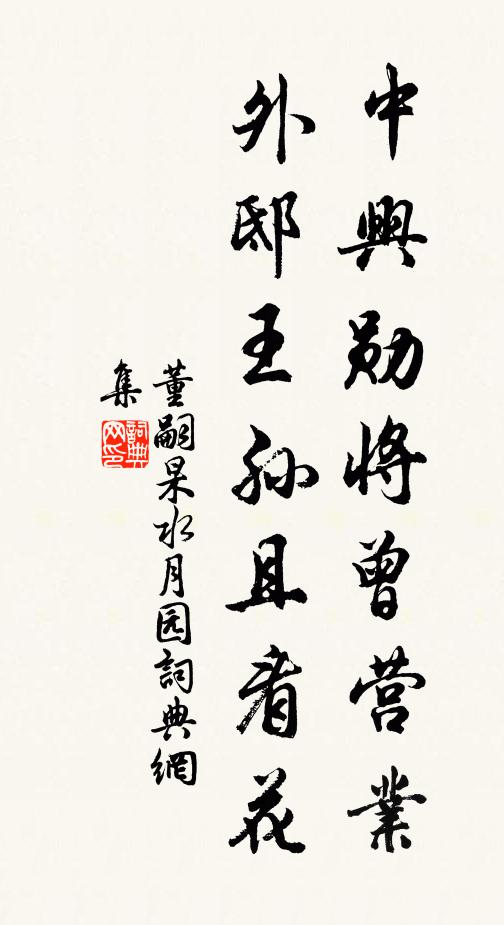 中興勛將曾营業
外邸王孙且看花
董嗣杲水月园詞典網
集
詞典网印